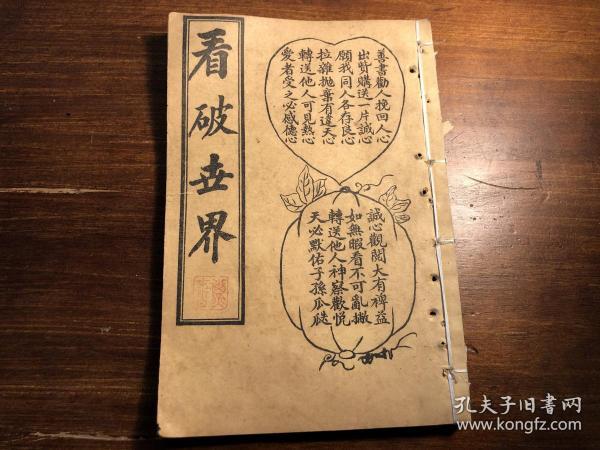 看破世界
善書勸人挽回人心
出貲購送一片誠心
願我同人各存良心
拉雜拋棄有違天心
轉送他人可見熱心
愛者受之必感德心
誠心觀閱大有裨益
如無暇看不可亂撇
轉送他人神察歡悅
天必默佑子孫瓜瓞
孔夫子旧书网
www.kongfz.com